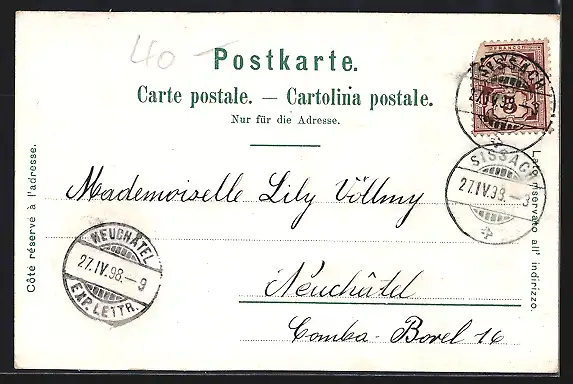 40 –
Postkarte.
Carte postale. — Cartolina postale.
Nur für die Adresse.
FRANCO
SISSACH
27.IV.98.–3
SISSACH
27.IV.98.–3
Côté réservé à l'adresse.
Lato riservato all' indirizzo.
Mademoiselle Lily Völlmy
NEUCHÂTEL
27.IV.98.–9
EXP. LETTR.
Neuchâtel
Comba-Borel 16